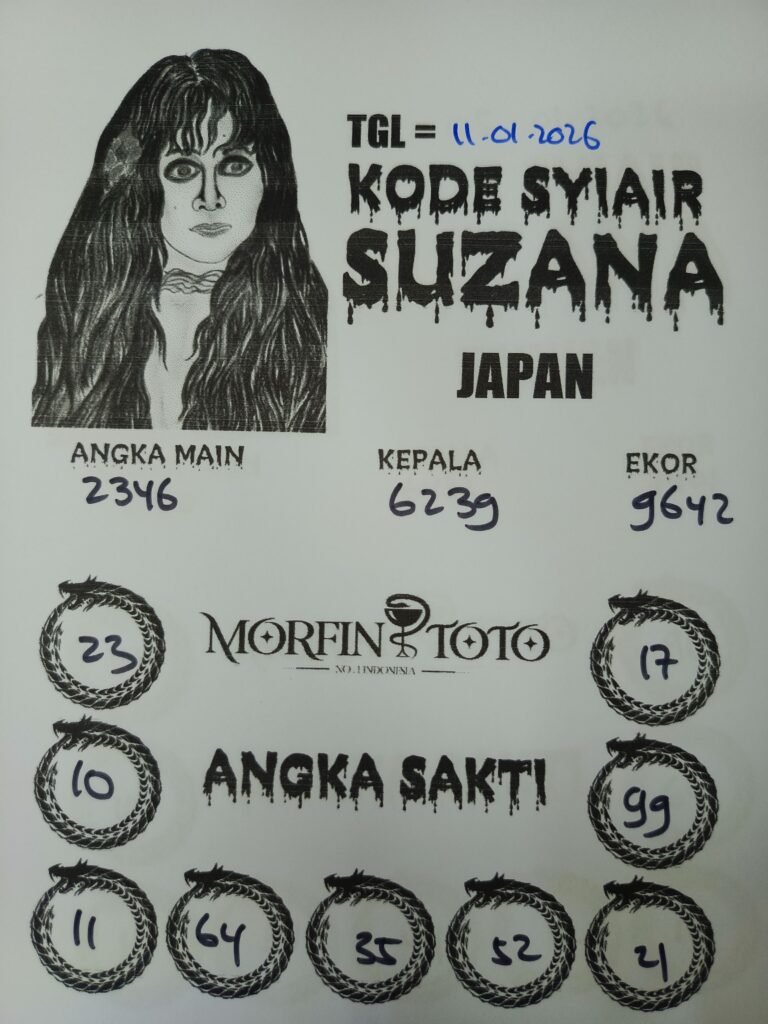 TGL = 11-01-2026
KODE SYIAIR
SUZANA
JAPAN
ANGKA MAIN
2346
KEPALA
6239
EKOR
9642
MORFIN TOTO
NO.1 INDONESIA
23
17
ANGKA SAKTI
10
99
11
64
35
52
21